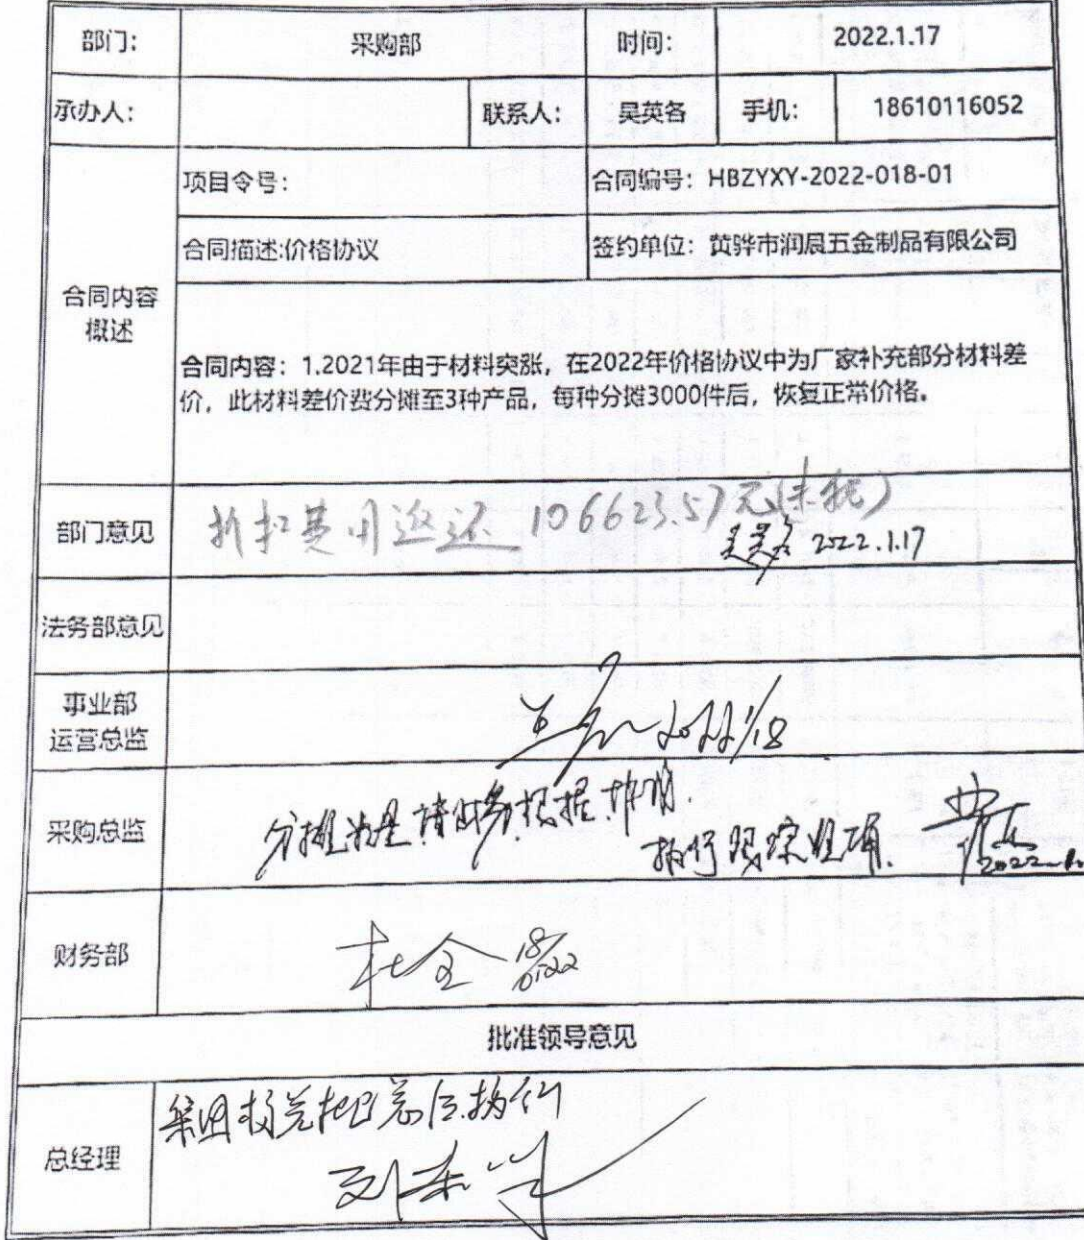 部门： 采购部 时间： 2022.1.17
承办人： 联系人： 吴英各 手机： 18610116052
项目令号： 合同编号：HBZYXY-2022-018-01
合同描述:价格协议 签约单位：黄骅市润晨五金制品有限公司
合同内容
概述
合同内容：1.2021年由于材料突涨，在2022年价格协议中为厂家补充部分材料差
价，此材料差价费分摊至3种产品，每种分摊3000件后，恢复正常价格。
部门意见
折扣费用返还 106623.57元(未税)
吴英各 2022.1.17
法务部意见
事业部
运营总监
2022 1/18
采购总监
分摊 请财务根据
执行跟踪
财务部
杜全
批准领导意见
总经理
集团 后执行